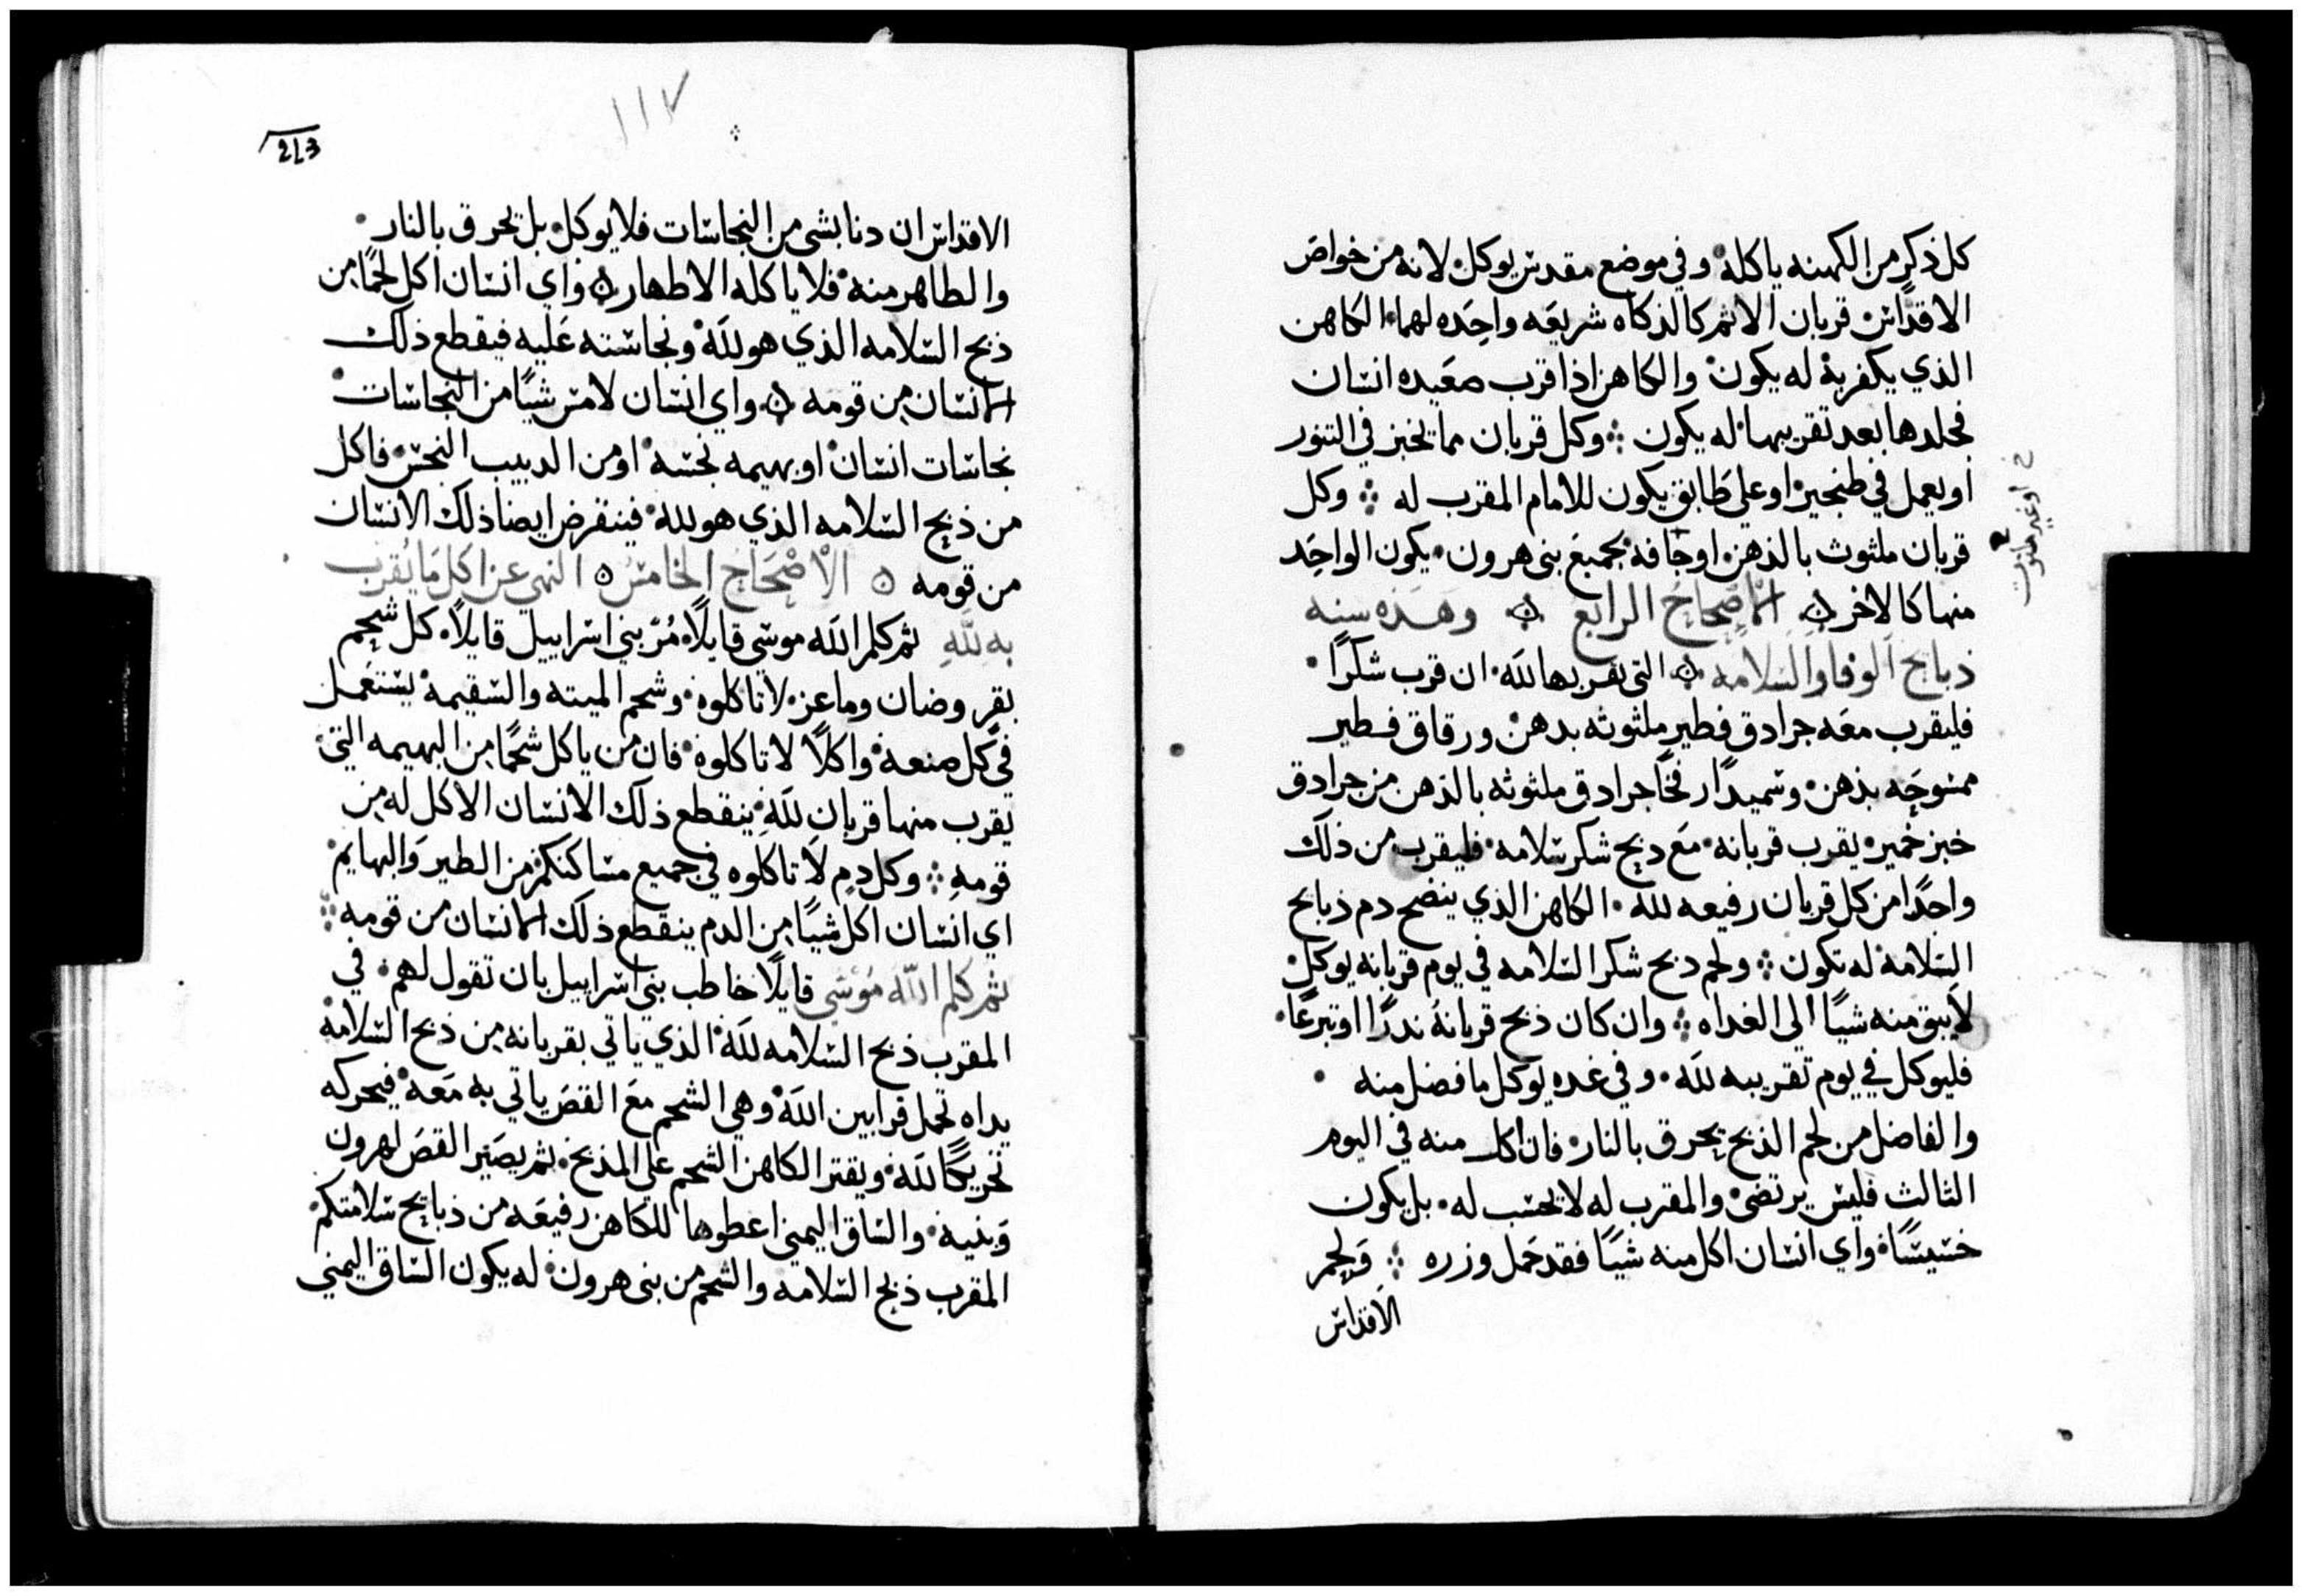 كل ذكر من الكهنه ياكله وفي موضع مقدس يوكل لانه من خواص
الاقداس قربان الاثم كالذكاه شريعه واحده لهما الكاهن
الذي يكفر به له يكون والكاهن اذا قرب صعيده انسان
فجلدها بعد تقريبها له يكون ⁘ وكل قربان مما يخبز في التنور
او يعمل في طنجير او على طابق يكون للامام المقرب له ⁘ وكل
قربان ملثوث بالدهن او جافه بجميع بني هرون يكون الواحد
منها كالاخر ۞ الاصحاح الرابع ۞ وهذه سنه
ذبايح الوفا والسلامه ۞ التي يقربها لله ان قرب شكرًا
فليقرب معه جرادق فطير ملثوثه بدهن ورقاق فطير
ممسوحه بدهن وسميدًا رخًا جرادق ملثوثه بالدهن من جرادق
خبز خمير يقرب قربانه مع ذبح شكر سلامه فليقرب من ذلك
واحدًا من كل قربان رفيعه لله الكاهن الذي ينضح دم ذبايح
السلامه له تكون ⁘ ولحم ذبح شكر السلامه في يوم قربانه يوكل
لا يبق منه شيًا الى الغداه ⁘ وان كان ذبح قربانه ندرًا او تبرعًا
فليوكل في يوم تقريبه لله وفي غده يوكل ما فضل منه
والفاضل من لحم الذبح يحرق بالنار فان اكل منه في اليوم
الثالث فليس يرتضى والمقرب له لا تحسب له بل يكون
خسيسًا واي انسان اكل منه شيًا فقد حمل وزره ⁘ ولحم
الاقداس
خ او غير ملثوث
213
١١٧
الاقداس ان دنا بشي من النجاسات فلا يوكل بل يحرق بالنار
والطاهر منه فلا ياكله الا طهار ۞ واي انسان اكل لحمًا من
ذبح السلامه الذي هو لله ونجاسته عليه فيقطع ذلك
الانسان من قومه ۞ واي انسان لامس شيًا من النجاسات
نجاسات انسان او بهيمه نجسه او من الدبيب النجس فاكل
من ذبح السلامه الذي هو لله فينقرض ايضا ذلك الانسان
من قومه ۞ الاصحاح الخامس ۞ النهي عن اكل ما يقرب
به لله ثم كلم الله موسى قايلًا مُر بني اسراييل قايلًا كل شحم
بقر وضان وماعز لا تاكلوه وشحم الميته والسقيمه يستعمل
في كل صنعه واكلًا لا تاكلوه فان من ياكل شحمًا من البهيمه التي
يقرب منها قربان لله ينقطع ذلك الانسان الاكل له من
قومه ⁘ وكل دم لا تاكلوه في جميع مساكنكم من الطير والبهايم
اي انسان اكل شيًا من الدم ينقطع ذلك الانسان من قومه ⁘
ثم كلم الله موسى قايلًا خاطب بني اسراييل بان تقول لهم في
المقرب ذبح السلامه لله الذي ياتي بقربانه من ذبح السلامه
يداه تحمل قرابين الله وهي الشحم مع القص ياتي به معه فيحركه
تحريكًا لله ويقتر الكاهن الشحم على المذبح ثم يصير القص لهرون
وبنيه والساق اليمنى اعطوها للكاهن رفيعه من ذبايح سلامتكم
المقرب ذبح السلامه والشحم من بني هرون له يكون الساق اليمنى